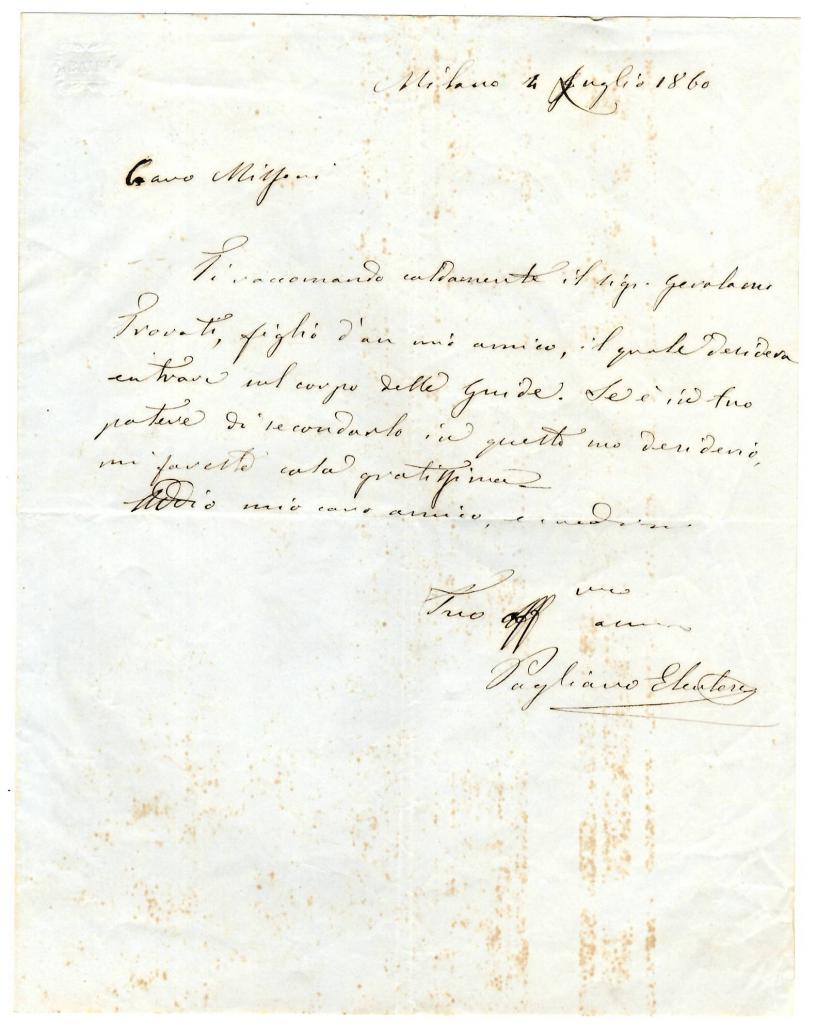 Milano 4 Luglio 1860
Caro Missori
Ti raccomando caldamente il sigr. Gerolamo
Provati, figlio d'un mio amico, il quale desidera
entrare nel corpo delle Guide. Se è in tuo
potere di secondarlo in questo suo desiderio,
mi faresti cosa gratissima
Addio mio caro amico,
Tuo aff mo
amico
Pagliano Eleuterio